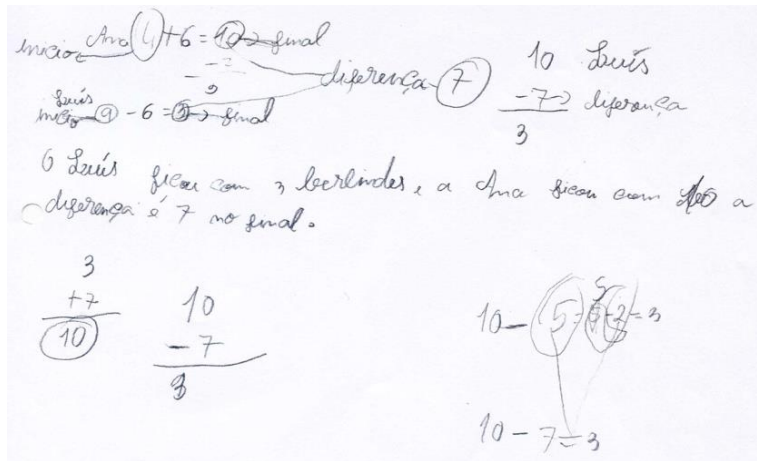 inicio Ana 4+6=10→final
diferença 7
Luís
inicio 9 - 6 = 3→ final
10 Luís
-7→ diferença
3
O Luís ficou com 3 berlindes, e a Ana ficou com 10 a
diferença é 7 no final.
3
+7
10
10
- 7
3
10 - 5 = 5-2=3
10 - 7 = 3